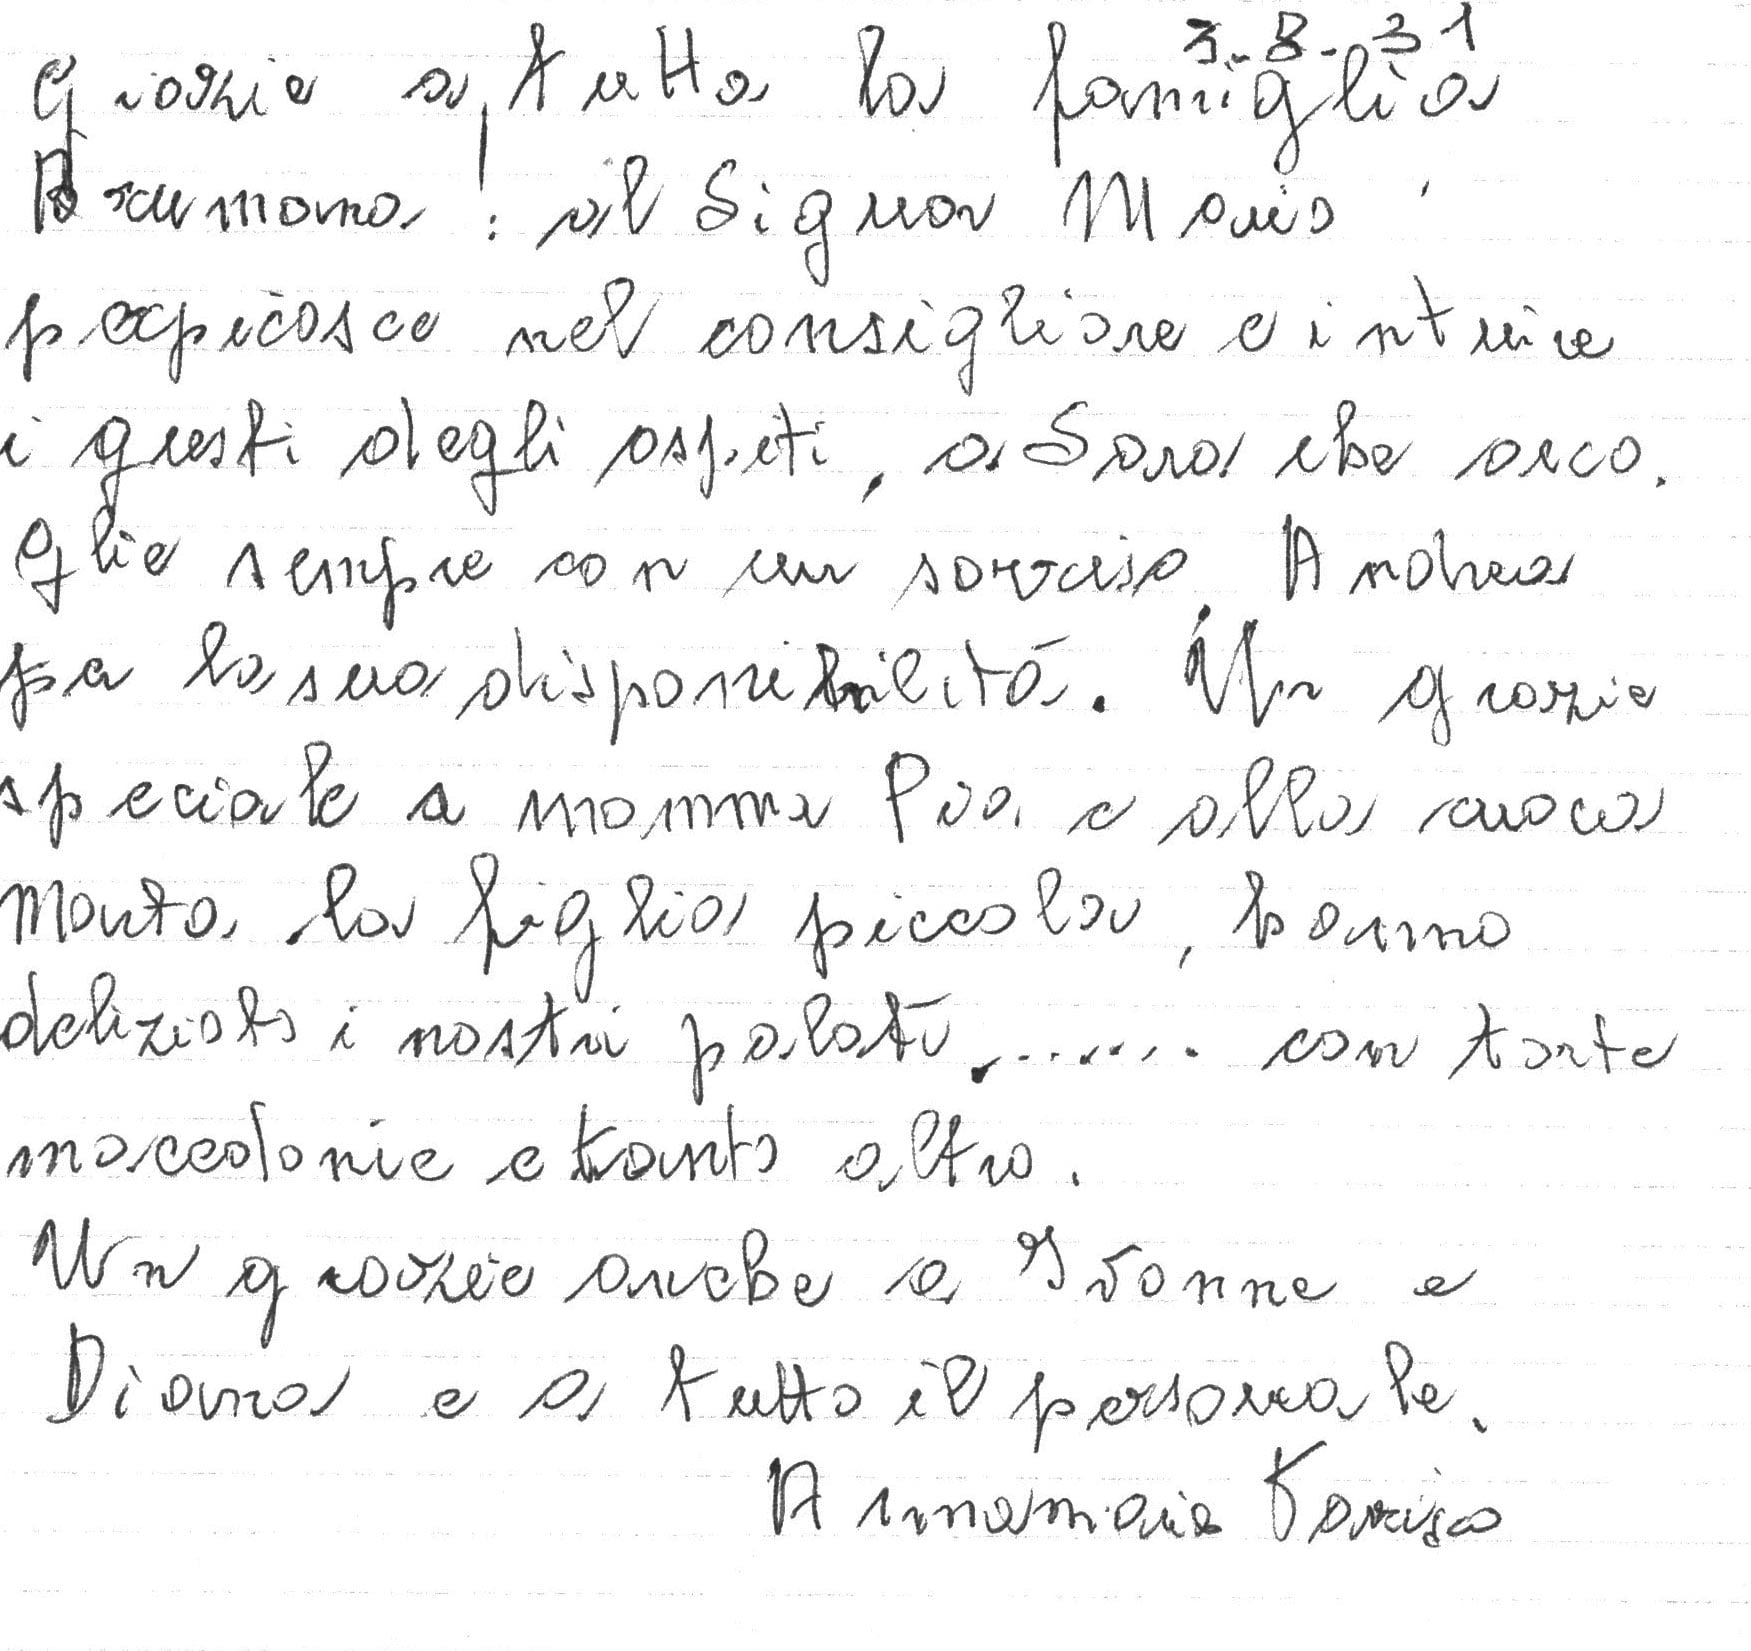 3-8-31
Grazie a tutta la famiglia
: al Signor Mario
nel consigliare e intuire
i gusti degli ospiti, a Sara che acco.
glie sempre con un sorriso, Andrea
per la sua disponibilità. Un grazie
speciale a mamma Pia e alla cuoca
Marta la figlia piccola, hanno
deliziato i nostri palati ....... con torte
maccedonie e tanto altro.
Un grazie anche a Ivonne e
Diana e a tutto il personale.
Annamaria